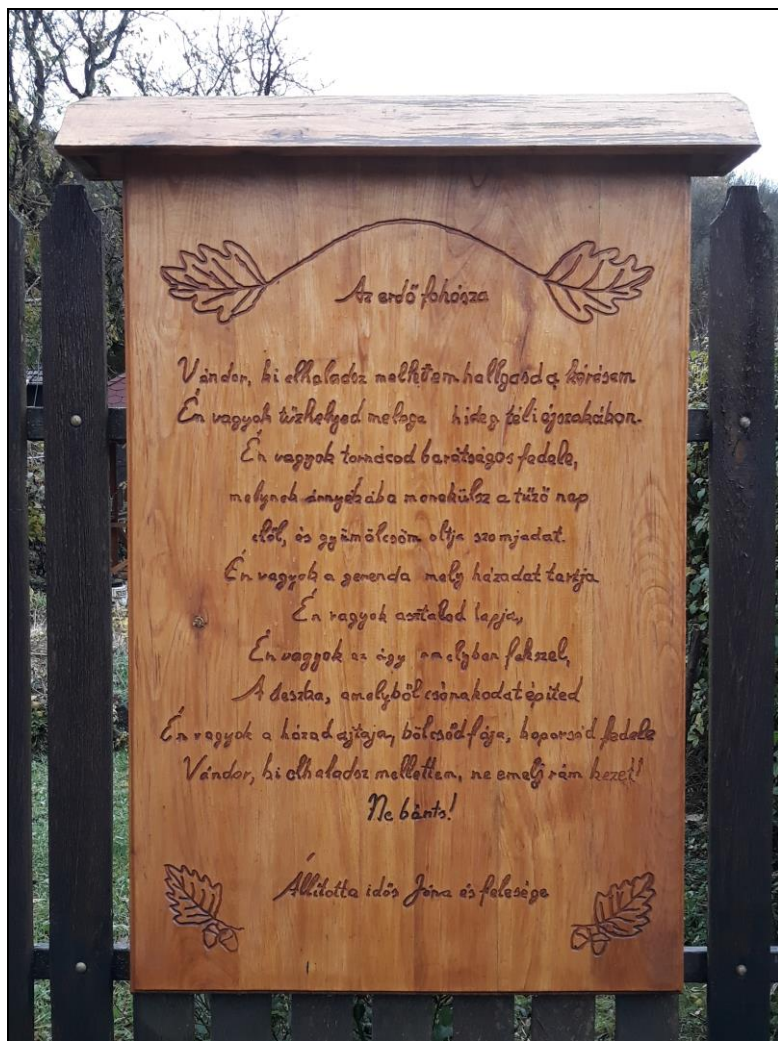 Az erdő fohásza
Vándor, ki elhaladsz mellettem hallgasd a kérésem
Én vagyok tűzhelyed melege hideg téli éjszakában.
Én vagyok tornácod barátságos fedele,
melynek árnyékába menekülsz a tűző nap
elől, és gyümölcsöm oltja szomjadat.
Én vagyok a gerenda mely házadat tartja
Én vagyok asztalod lapja,
Én vagyok az ágy amelyben fekszel,
A deszka, amelyből csónakodat építed
Én vagyok a házad ajtaja, bölcsőd fája, koporsód fedele
Vándor, ki elhaladsz mellettem, ne emelj rám kezet!
Ne bánts!
Állította idős Jóna és felesége